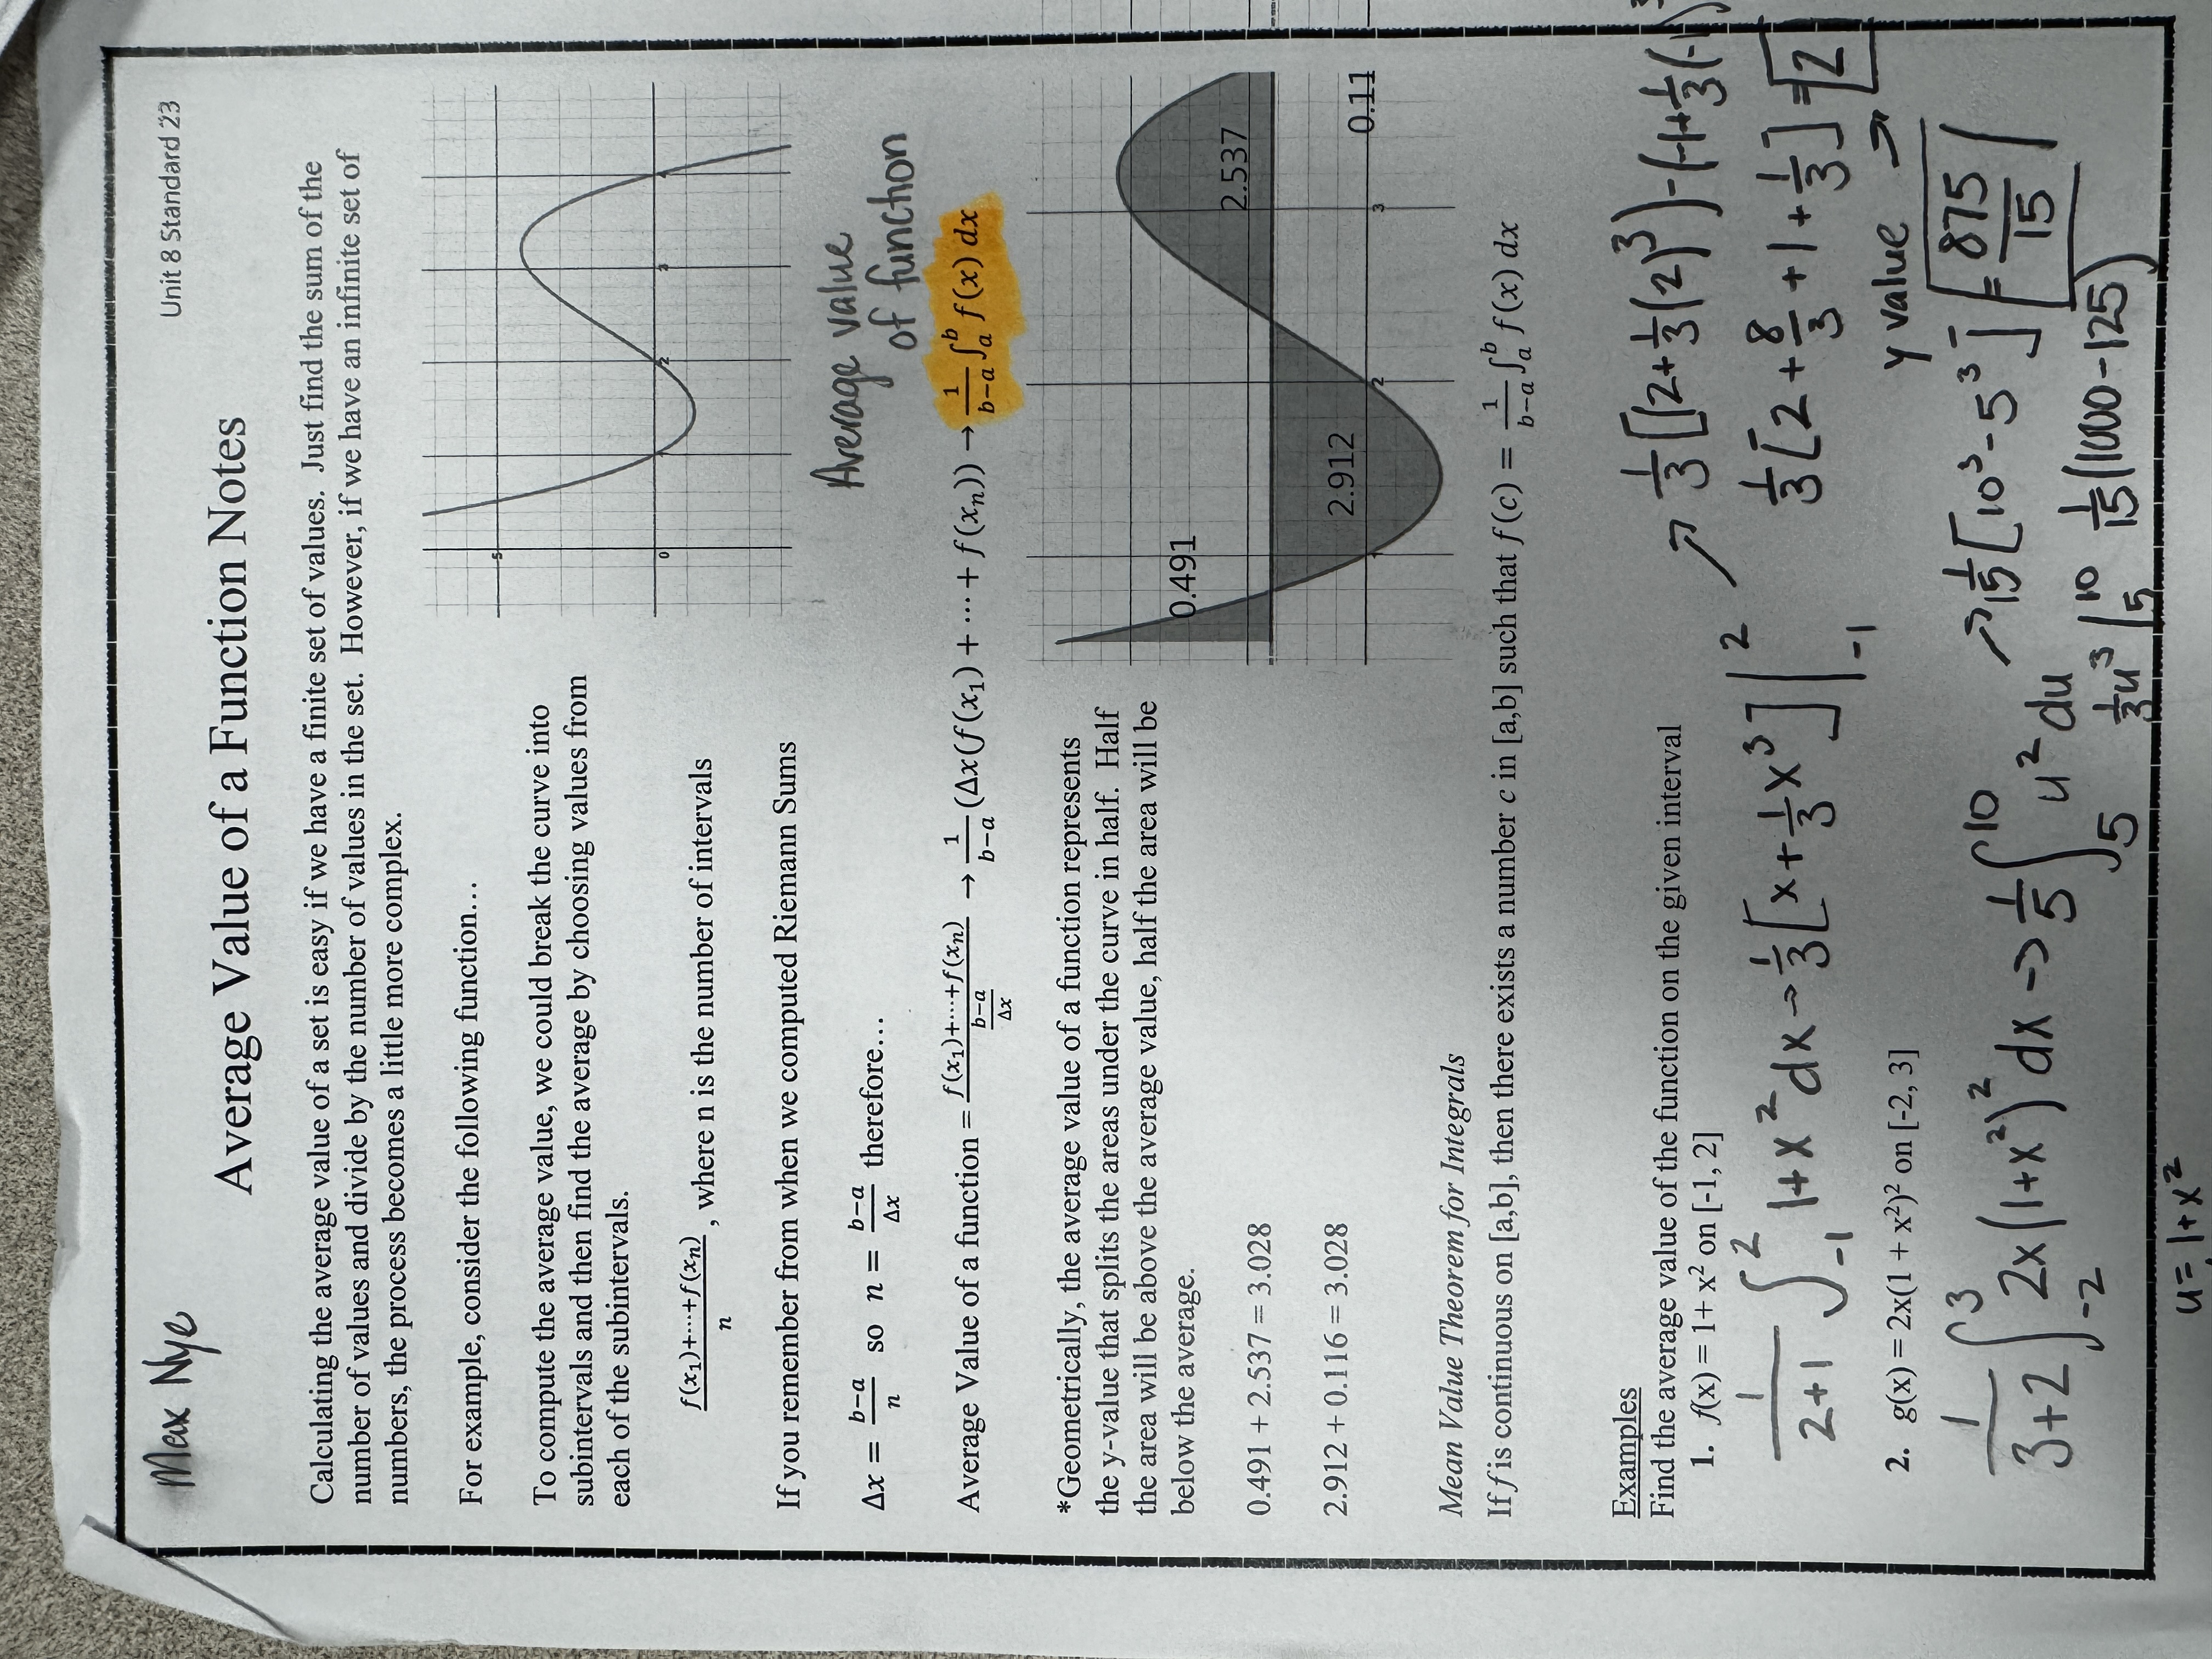 Max Nye
Unit 8 Standard 23
Average Value of a Function Notes
Calculating the average value of a set is easy if we have a finite set of values. Just find the sum of the
number of values and divide by the number of values in the set. However, if we have an infinite set of
numbers, the process becomes a little more complex.
For example, consider the following function…
To compute the average value, we could break the curve into
subintervals and then find the average by choosing values from
each of the subintervals.
5
0 2 3 4
f(x₁)+⋯+f(xₙ)/n , where n is the number of intervals
If you remember from when we computed Riemann Sums
Δx = b−a/n so n = b−a/Δx therefore…
Average value
of function
Average Value of a function = f(x₁)+⋯+f(xₙ)/(b−a/Δx) → 1/b−a (Δx(f(x₁) + ⋯ + f(xₙ)) → 1/b−a ∫ₐᵇ f(x) dx
*Geometrically, the average value of a function represents
the y-value that splits the areas under the curve in half. Half
the area will be above the average value, half the area will be
below the average.
0.491 + 2.537 = 3.028
2.912 + 0.116 = 3.028
0.491
2.537
2.912
0.11
1 2 3
Mean Value Theorem for Integrals
If f is continuous on [a,b], then there exists a number c in [a,b] such that f(c) = 1/b−a ∫ₐᵇ f(x) dx
Examples
Find the average value of the function on the given interval
1. f(x) = 1+ x² on [-1, 2]
1/2+1 ∫₋₁² 1+x² dx → 1/3 [x + 1/3 x³] |₋₁²
↗ 1/3 [(2+1/3(2)³) - (-1+1/3(-1)³
1/3 [2 + 8/3 + 1 + 1/3] = 2
y value →
2. g(x) = 2x(1 + x²)² on [-2, 3]
1/3+2 ∫₋₂³ 2x(1+x²)² dx → 1/5 ∫₅¹⁰ u² du
→ 1/15 [10³ - 5³] = 875/15
1/3 u³ |₅¹⁰ 1/15 (1000-125)
u = 1+x²